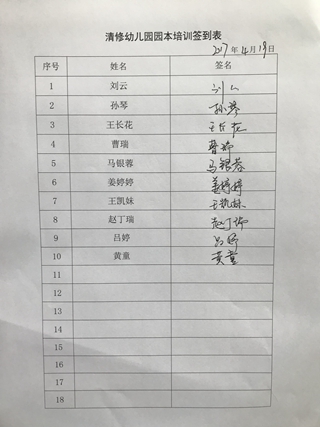 清修幼儿园园本培训签到表
2017年4月19日
序号 姓名 签名
1 刘云 刘云
2 孙琴 孙琴
3 王长花 王长花
4 曹瑞 曹瑞
5 马银蓉 马银蓉
6 姜婷婷 姜婷婷
7 王凯妹 王凯妹
8 赵丁瑞 赵丁瑞
9 吕婷 吕婷
10 黄童 黄童
11
12
13
14
15
16
17
18